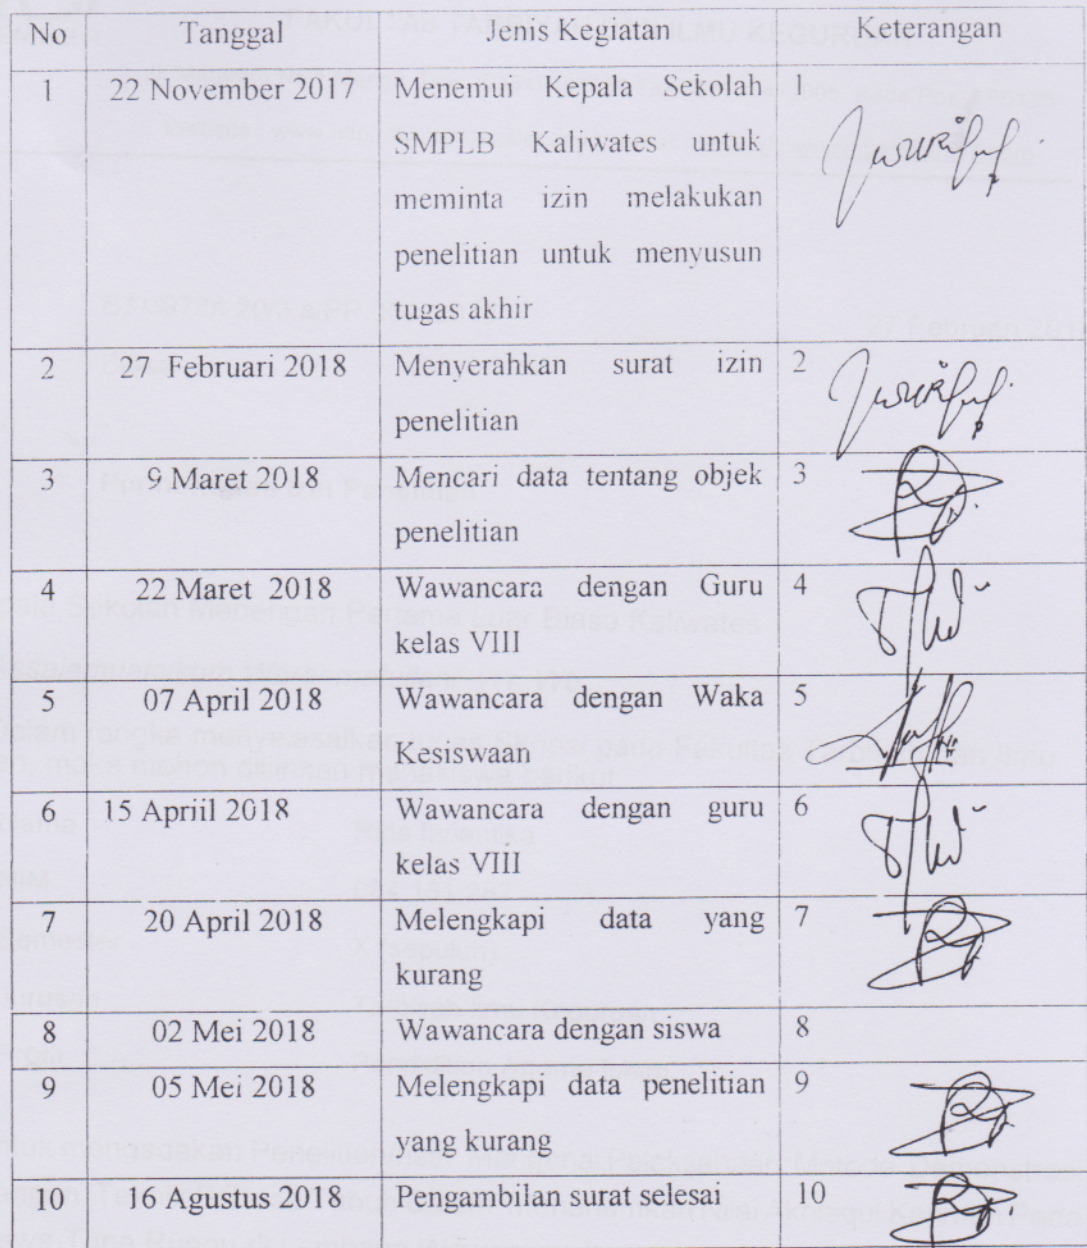 No Tanggal Jenis Kegiatan Keterangan
1 22 November 2017 Menemui Kepala Sekolah 1
SMPLB Kaliwates untuk
meminta izin melakukan
penelitian untuk menyusun
tugas akhir
2 27 Februari 2018 Menyerahkan surat izin 2
penelitian
3 9 Maret 2018 Mencari data tentang objek 3
penelitian
4 22 Maret 2018 Wawancara dengan Guru 4
kelas VIII
5 07 April 2018 Wawancara dengan Waka 5
Kesiswaan
6 15 Apriil 2018 Wawancara dengan guru 6
kelas VIII
7 20 April 2018 Melengkapi data yang 7
kurang
8 02 Mei 2018 Wawancara dengan siswa 8
9 05 Mei 2018 Melengkapi data penelitian 9
yang kurang
10 16 Agustus 2018 Pengambilan surat selesai 10